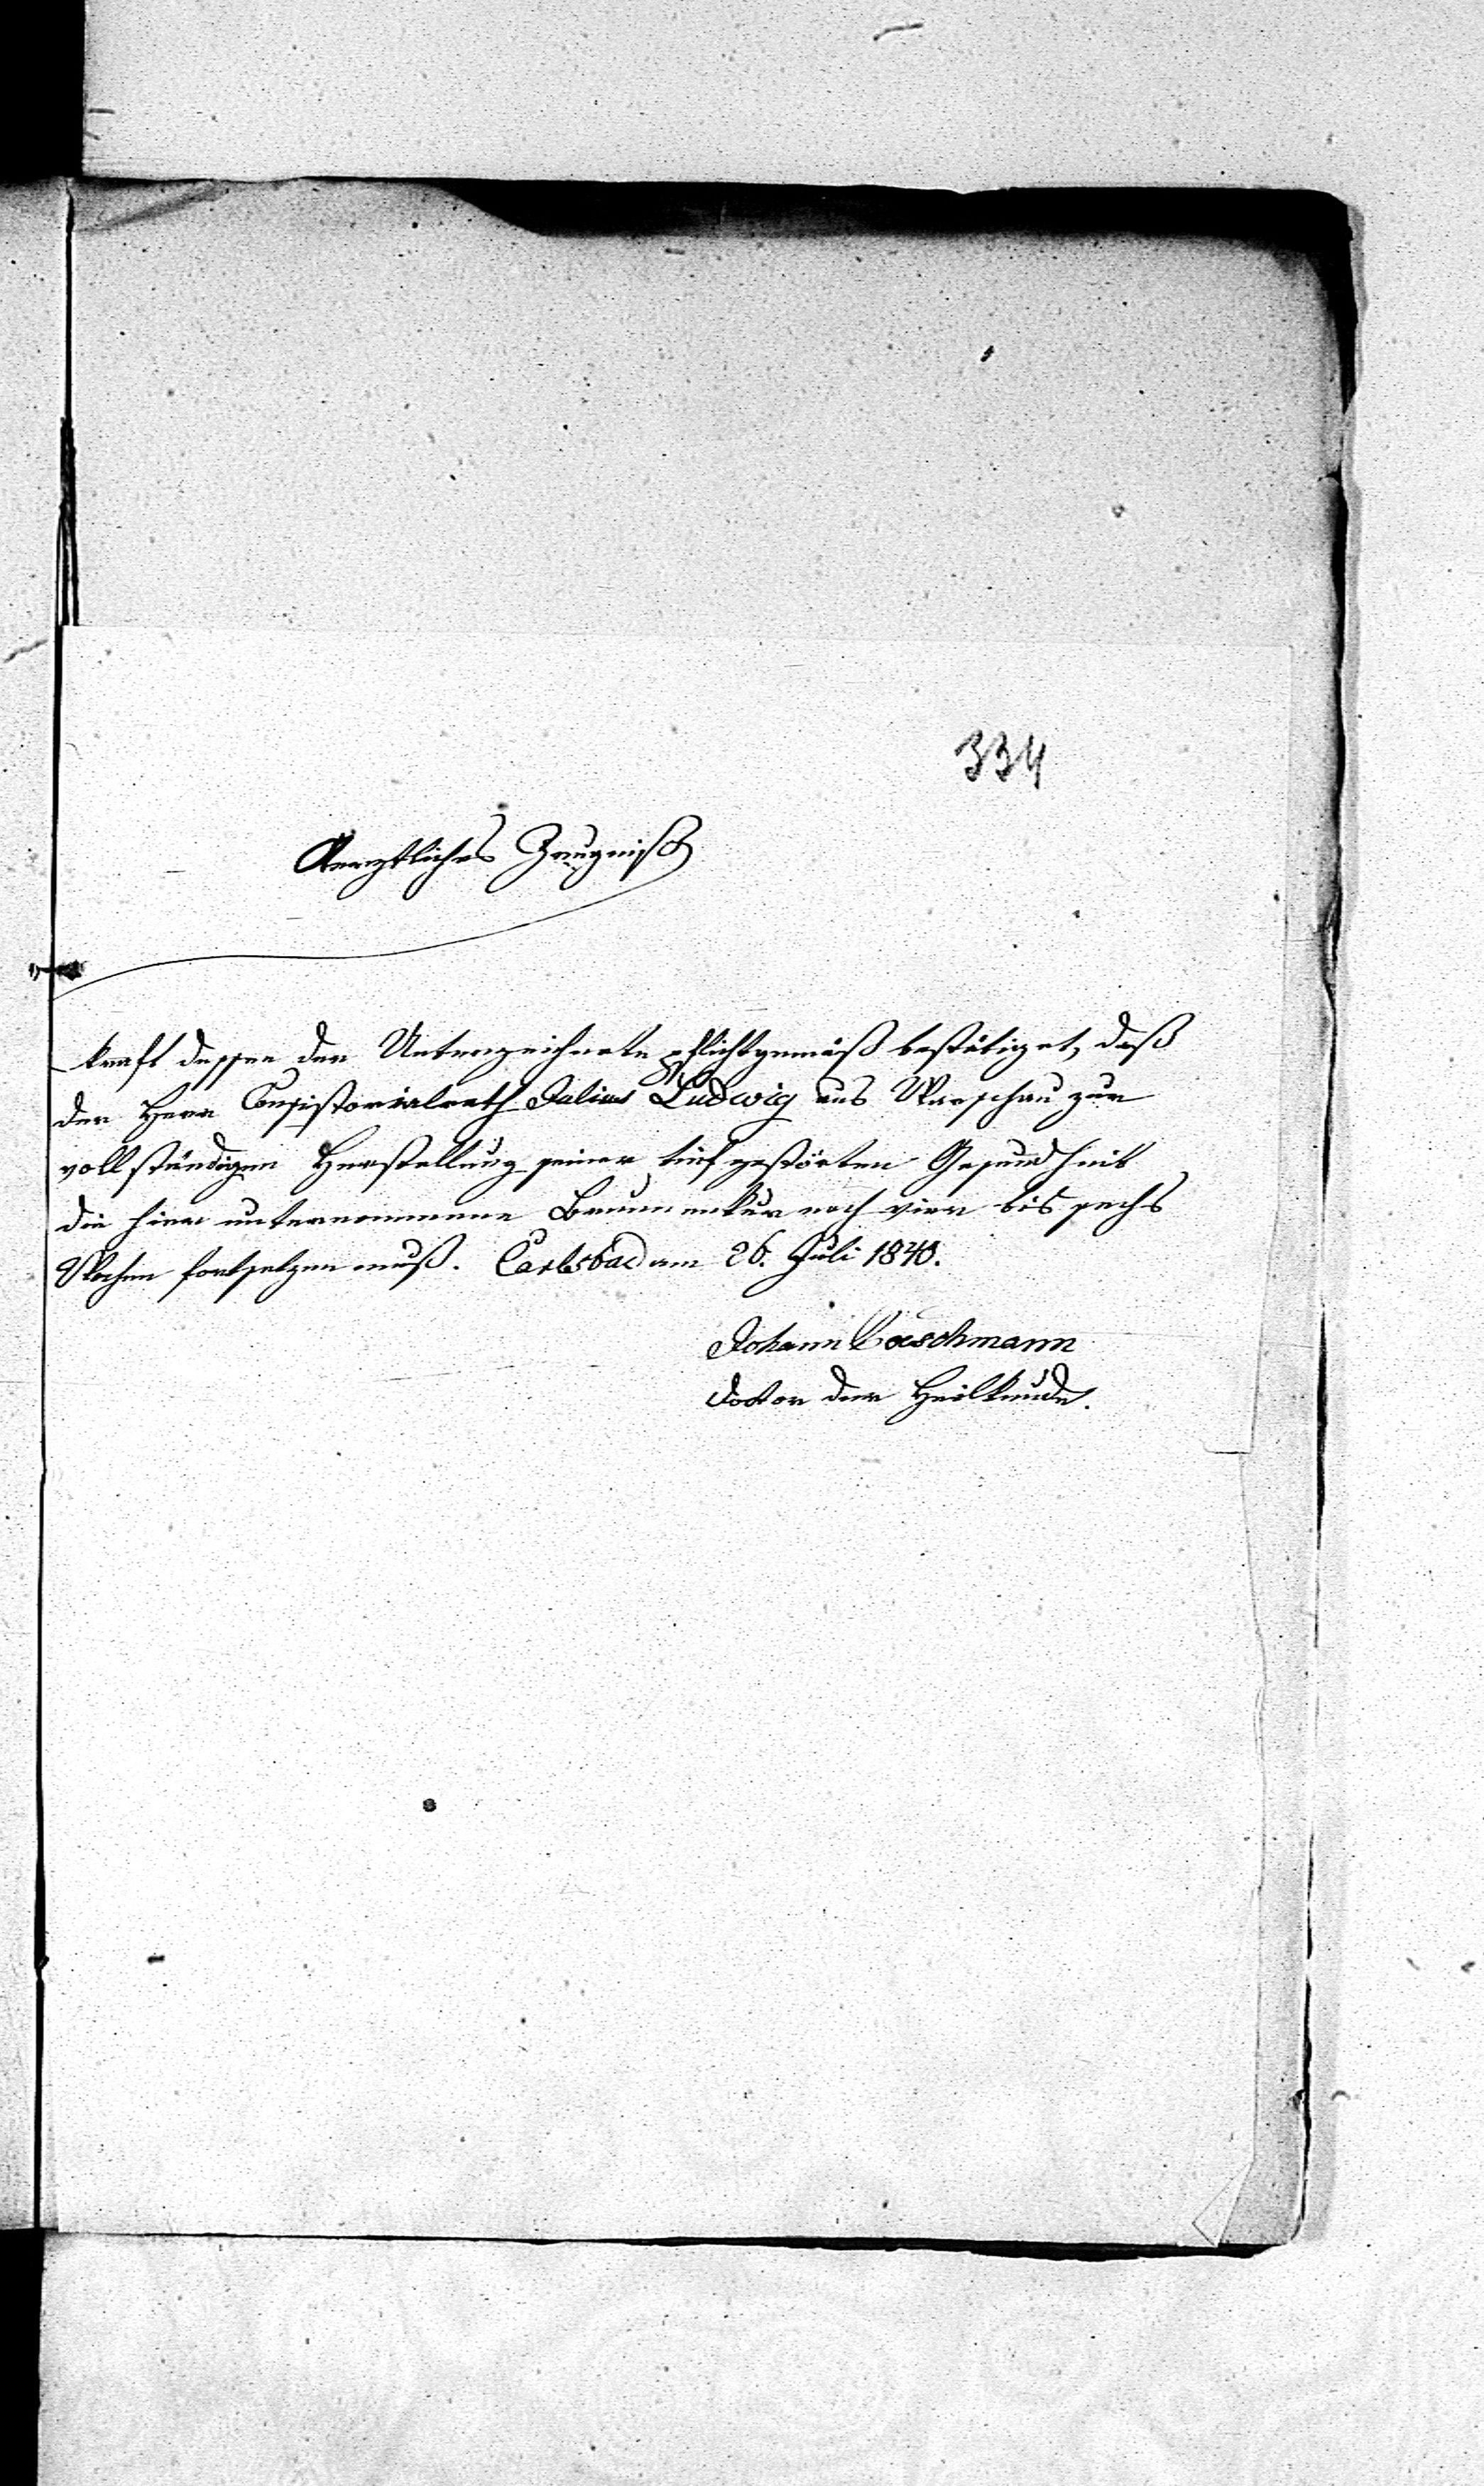 334
Aerztliches Zeugniß
kraft dessen der Unterzeichnete pflichtgemäß bestätiget, daß
der Herr Consistorialrath Julius Ludwig aus Warschau zur
vollständigen Herstellung seiner tief gestörten Gesundheit
die hier unternommene Brunnenkur noch vier bis sechs
Wochen fortsetzen muß. Carlsbad am 26. Juli 1840.
Johann
Doktor der Heilkunde.